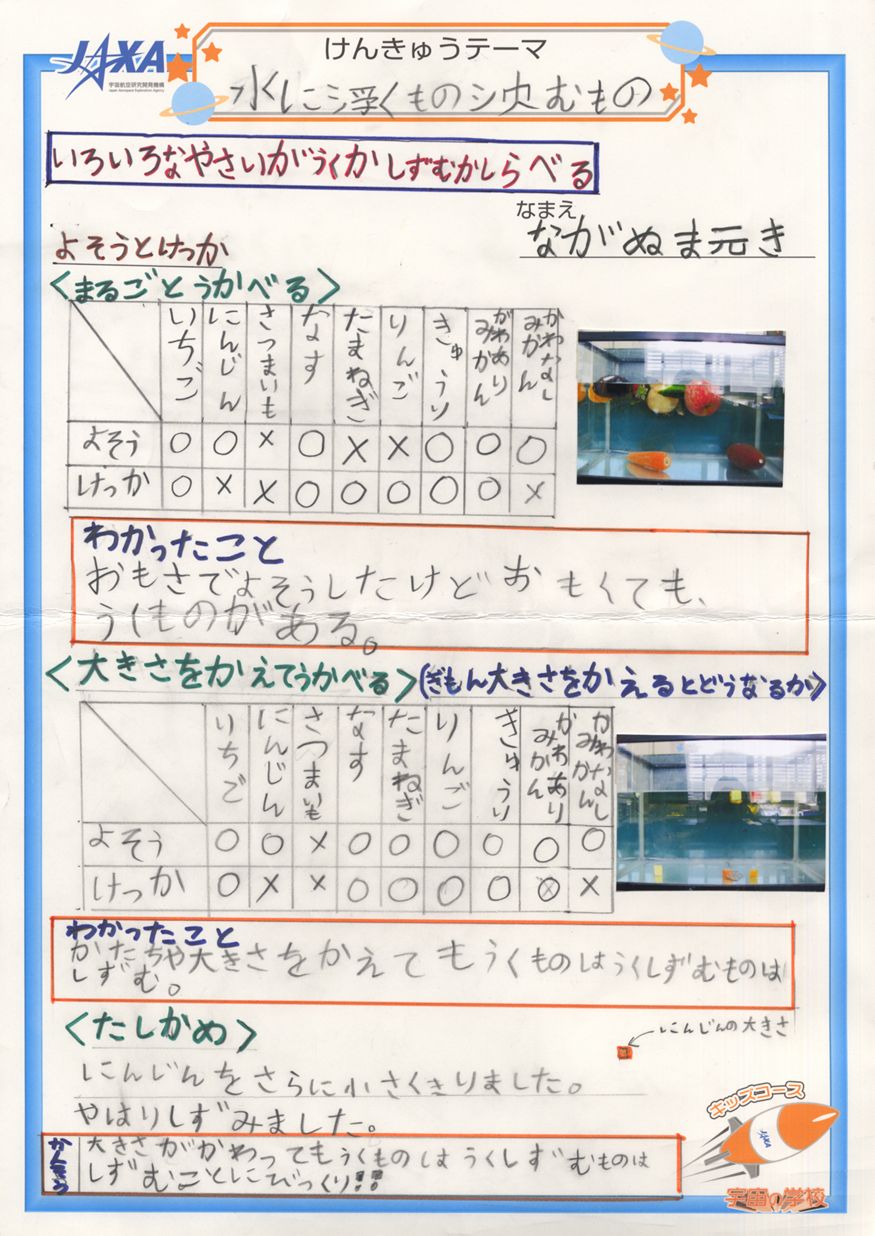 JAXA
宇宙航空研究開発機構
Japan Aerospace Exploration Agency
けんきゅうテーマ
水に浮くもの沈むもの
いろいろなやさいがうくかしずむかしらべる
なまえ
ながぬま元き
よそうとけっか
<まるごとうかべる>
いちご にんじん さつまいも なす たまねぎ りんご きゅうり かわありみかん かわなしみかん
よそう ○ ○ × ○ × × ○ ○ ○
けっか ○ × × ○ ○ ○ ○ ○ ×
わかったこと
おもさでよそうしたけどおもくても、
うくものがある。
<大きさをかえてうかべる>(ぎもん大きさをかえるとどうなるか)
いちご にんじん さつまいも なす たまねぎ りんご きゅうり かわありみかん かわなしみかん
よそう ○ ○ × ○ ○ ○ ○ ○ ○
けっか ○ × × ○ ○ ○ ○ ⊗ ×
わかったこと
かたちや大きさをかえてもうくものはうくしずむものは
しずむ。
<たしかめ>
にんじんの大きさ
にんじんをさらに小さくきりました。
やはりしずみました。
かんそう
大きさがかわってもうくものはうくしずむものは
しずむことにびっくり!!
キッズコース
JAXA
宇宙の学校